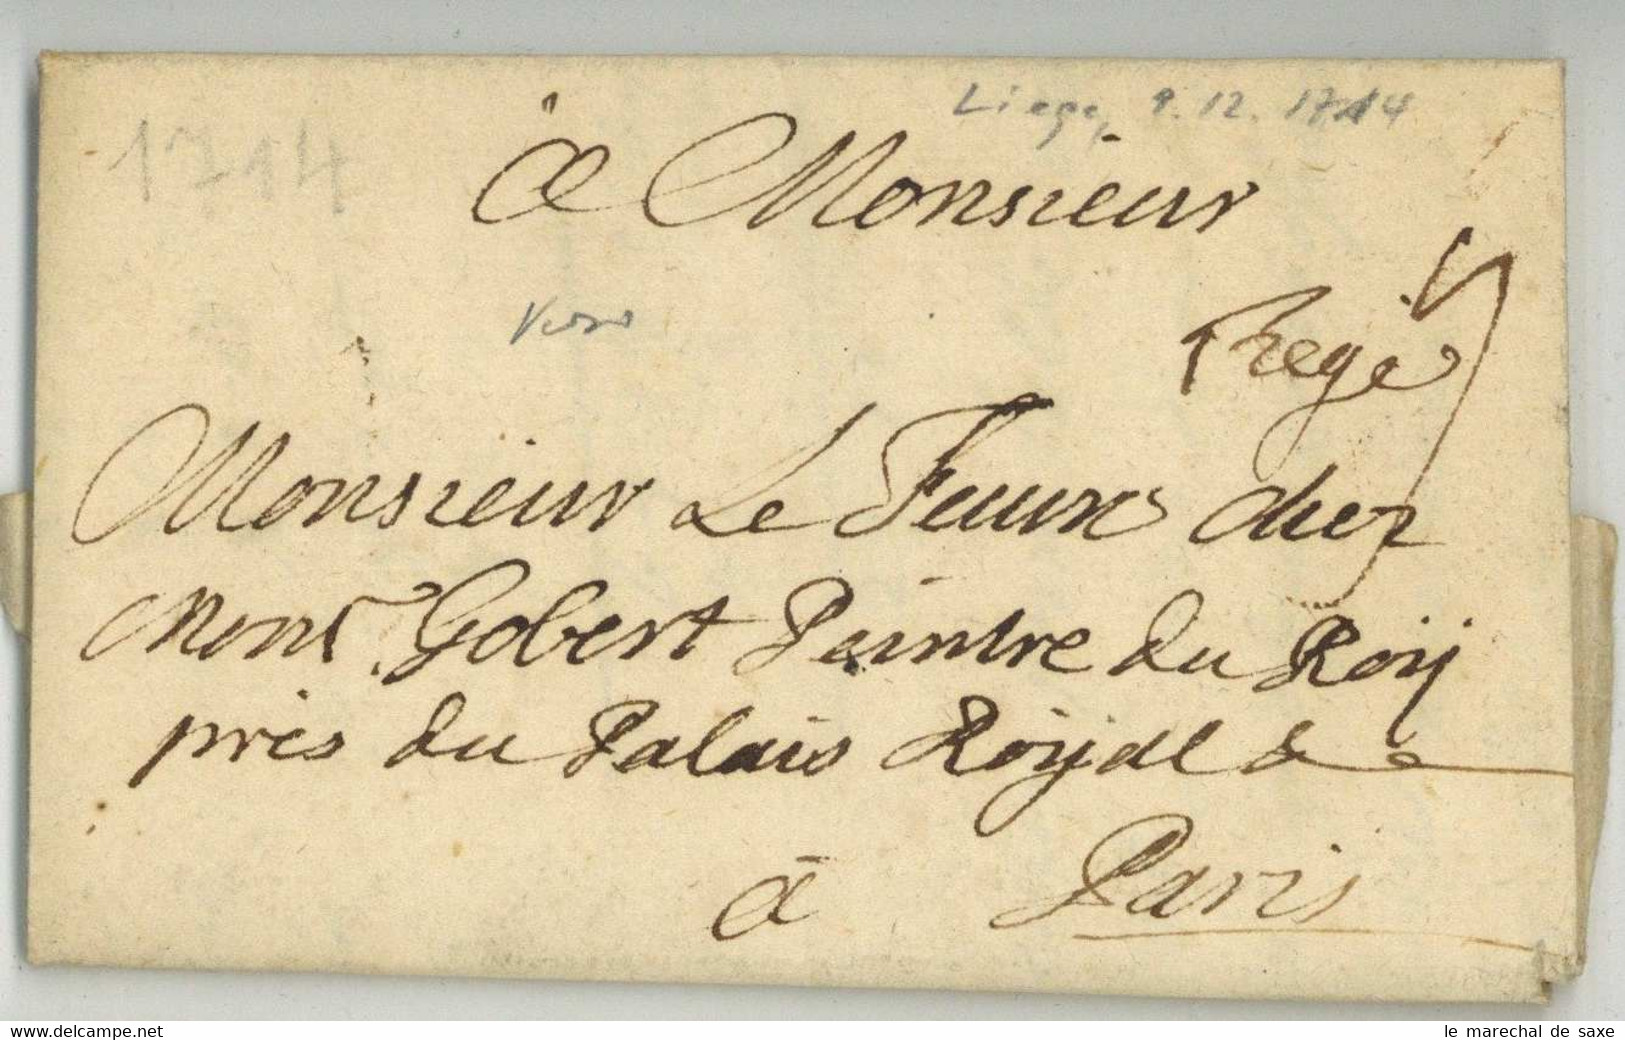 Liege, 9.12.1714
1714
à Monsieur
Verso
Monsieur Le Feuure chez
Mons.r Gobert Peintre du Roÿ
près du Palais Roÿal &
à Paris
www.delcampe.net
le marechal de saxe